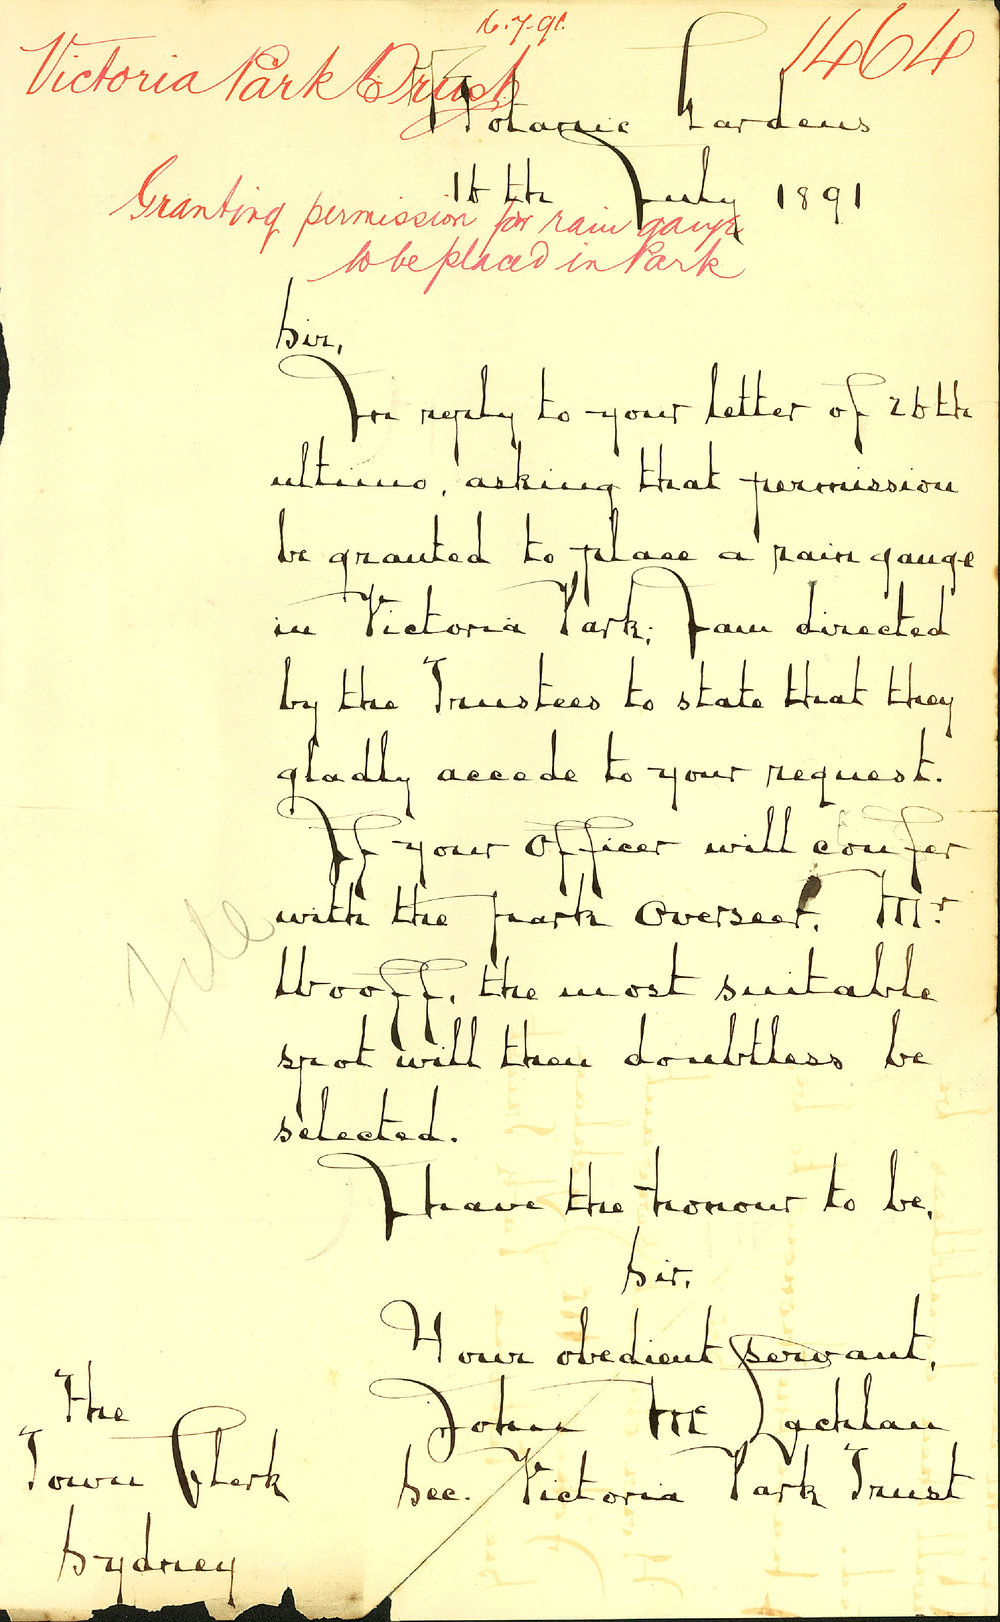 16.7.91.
1464
Victoria Park Trust
Botanic Gardens
16th July 1891
Granting permission for rain gauge
to be placed in Park
Sir,
In reply to your letter of 26th
ultimo, asking that permission
be granted to place a rain gauge
in Victoria Park; I am directed
by the Trustees to state that they
gladly accede to your request.
If your Officer will confer
with the park Overseer, Mr
Wooff, the most suitable
spot will then doubtless be
selected.
I have the honour to be,
Sir,
Your obedient servant,
John Mc Lachlan
Sec. Victoria Park Trust
The
Town Clerk
Sydney